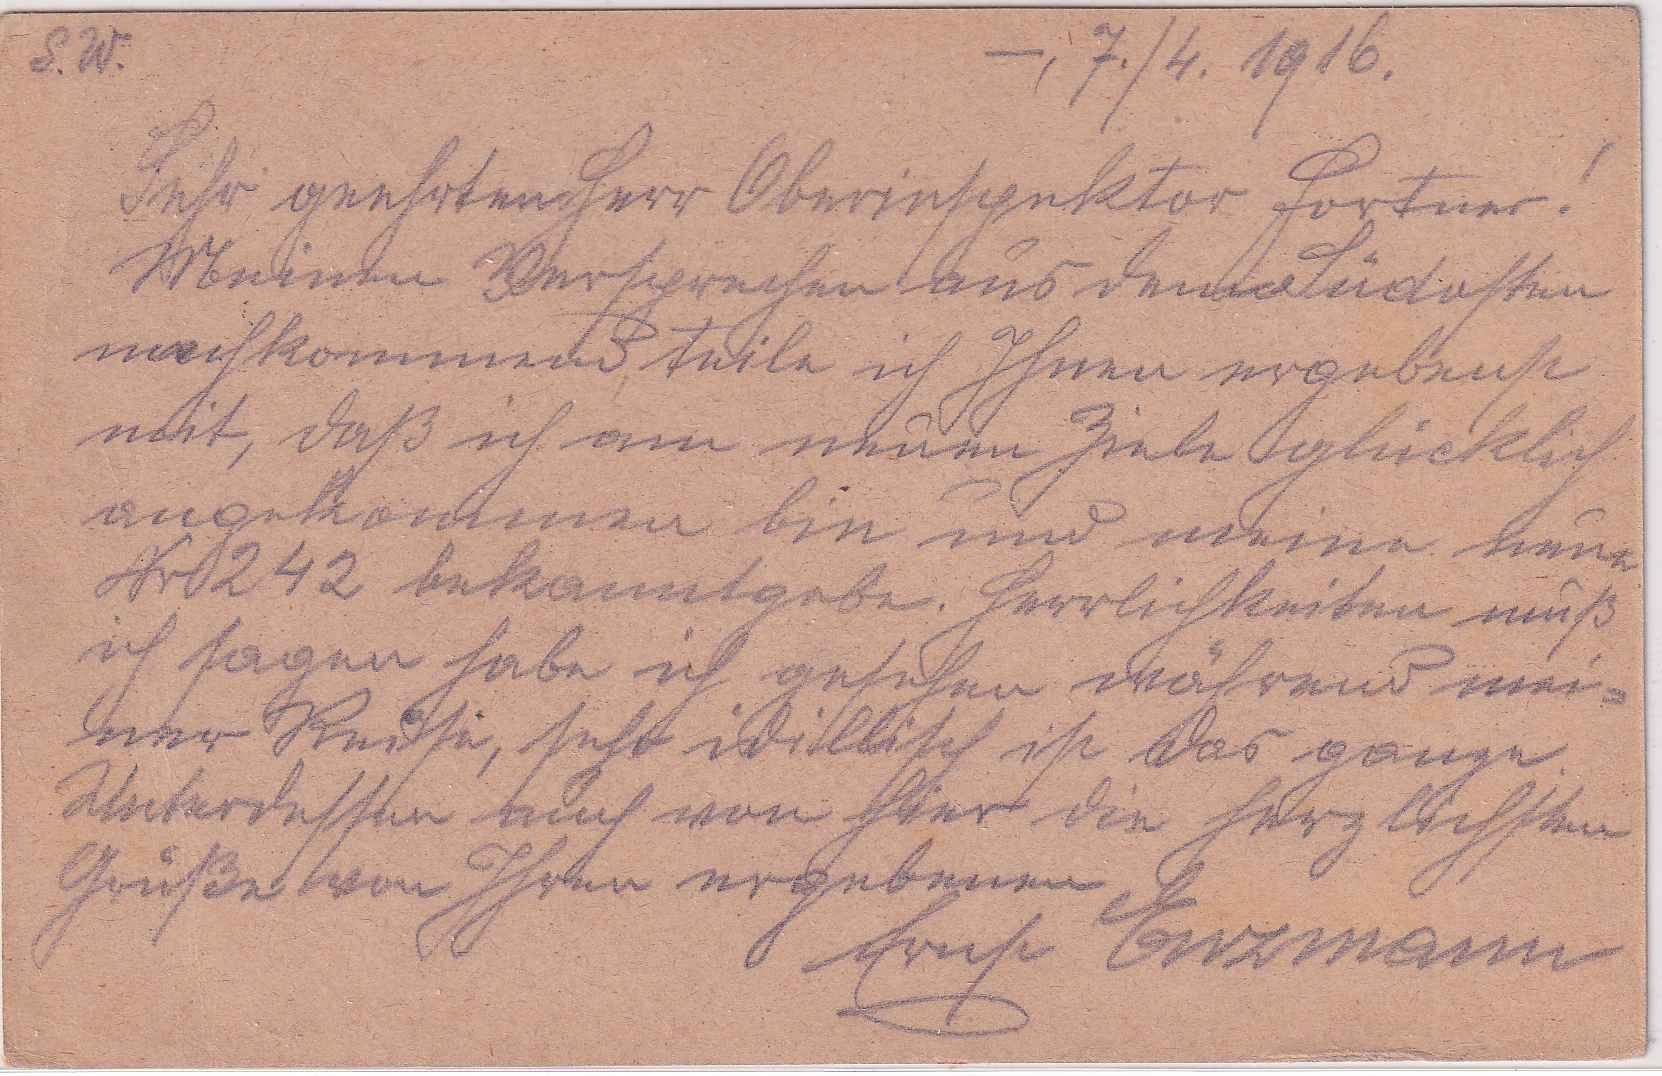 S. W.
—, 7./4. 1916.
Sehr geehrter Herr Oberinspektor Fortner!
Meinen Versprechen aus dem Südosten
nachkommend teile ich Ihnen ergebenst
mit, daß ich am neuen Ziele glücklich
angekommen bin und meine neue
Nr 242 bekanntgebe. Herrlichkeiten muß
ich sagen habe ich gesehen während mei=
ner Reise, sehr idillisch ist das ganze.
Unterdessen auch von hier die herzlichsten
Grüße von Ihren ergebenen
Ernst